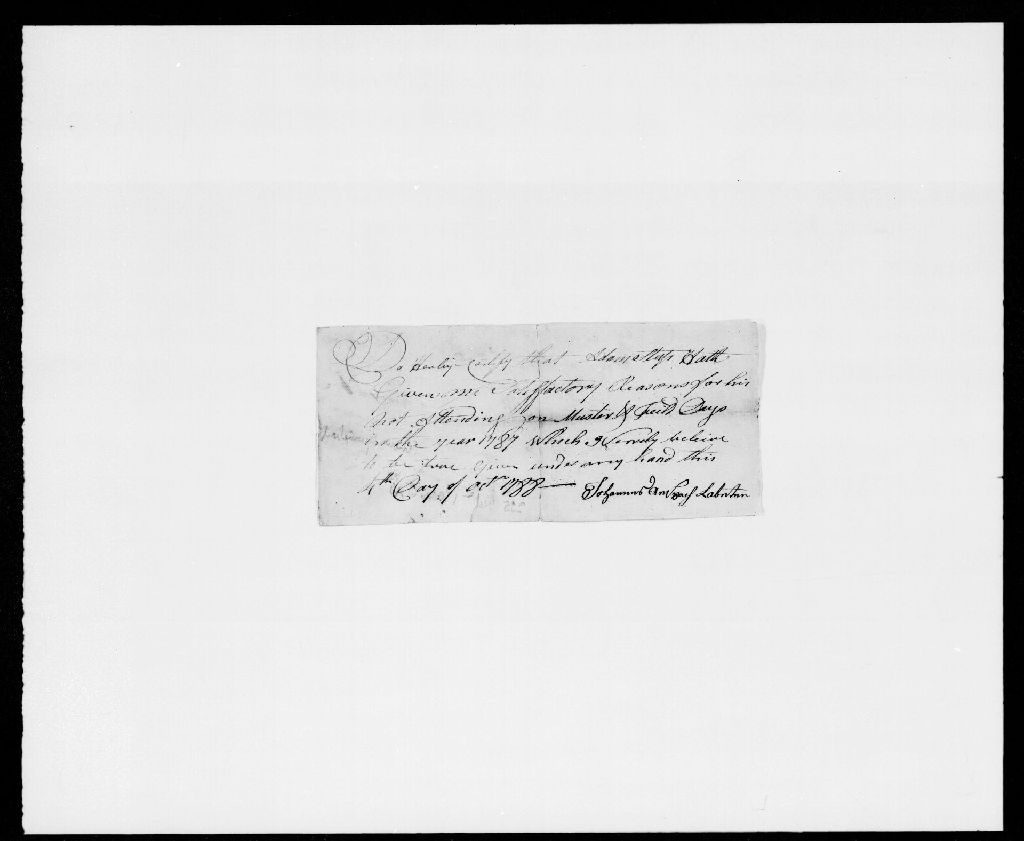 Do Hereby certify that Adam Hath
Given me Satisfactory Reasons for his
Not Attending on Muster & Field Days
in the year 1787 Which I Verily believe
to be true Given under my hand this
4th Day of Octr 1788 Johannes